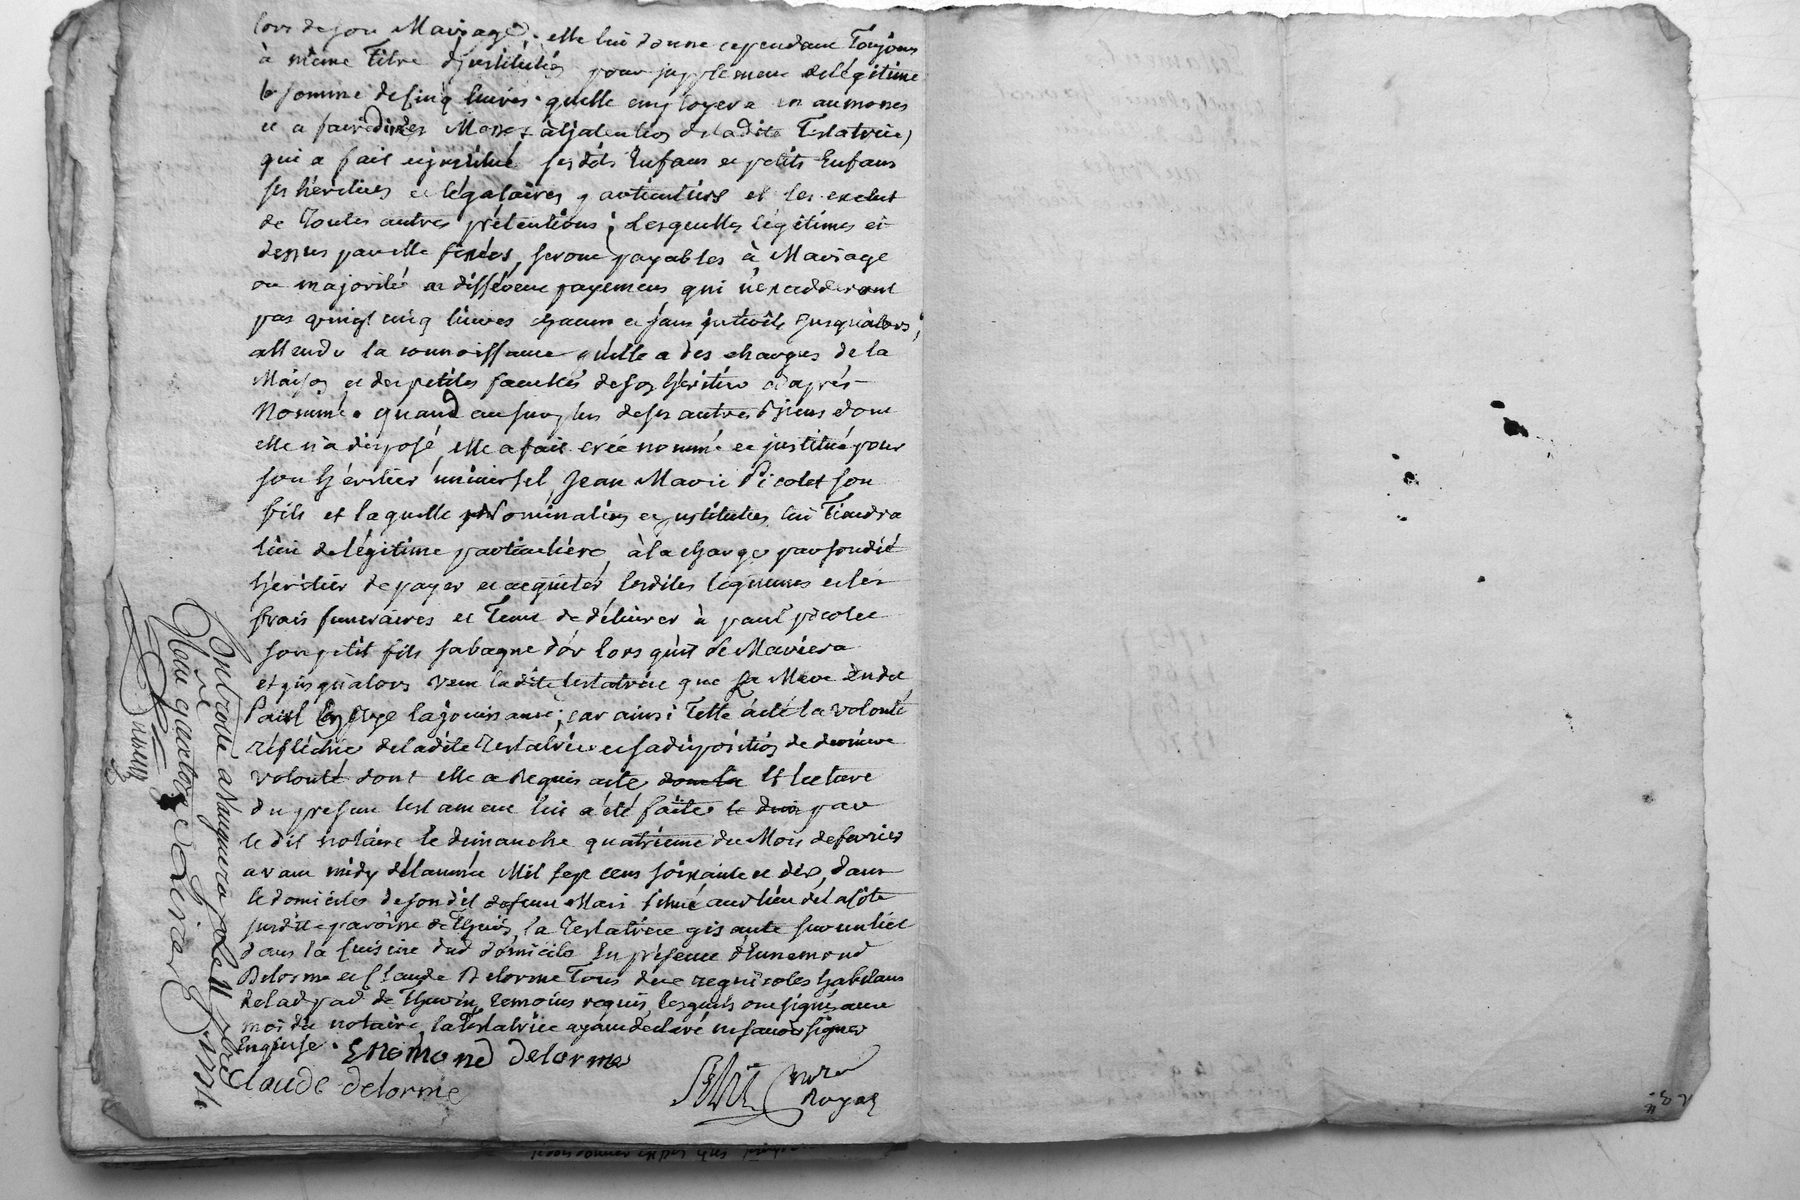 lors de son Mariage. elle lui donne cependant Toujours
à même Titre d'jnstitution pour supplement de légitime
la somme de cinq livres. quelle employera en aumones
et a faire dires Messes à l'jntention de ladite Testatrice,
qui a fait et jnstitué ses dits Enfans et petits Enfans
ses héritiers et légataires particuliers et les exclut
de Toutes autres prétentions; Lesquelles légitimes ci
dessus par elle fixées, seront payables à Mariage
ou majorité en différent payemens qui n'excedderont
pas vingt cinq livres chacun et sans jnterêts jusqu'alors;
attendu la connoissance quelle a des charges de la
Maison et des petites facultés de son héritier ci après
Nommé. quand au surplus de ses autres Biens dont
elle n'a disposé, elle a fait créé nommé et jnstitué pour
son héritier universel Jean Marie Picolet son
fils et laquelle Nomination et jnstitution lui Tiendra
lieu de légitime particulière, à la charge par sondit
héritier de payer et acquiter lesdites légitimes et les
frais funeraires et Tenu de délivrer à paul picolet
son petit fils sa bague d'or lors qu'il se Mariera
et jusqu'alors veut ladite testatrice que la Mere dudit
Paul en aye la jouissance; car ainsi Telle a été la volonté
réfléchie de ladite Testatrice et sa disposition de derniere
volonté dont elle a Requis acte, Et lecture
du présent testament lui a été faite par
le dit notaire le dimanche quatrième du Mois de fevrier
avant midy de l'année Mil sept cent soixante et dix, dans
le domicile de son dit defunt Mari situé au lieu de la côte
susdite paroisse de Thurin, la Testatrice gisante sur un lit
dans la cuisine dud domicile En présence d'Ennemond
Delorme et Claude Delorme Tous deux regnicoles habitans
de lad par de Thurin, temoins requis, lesquels ont signé avec
moi dit notaire, la Testatrice ayant déclaré ne savoir signer
Enquise.
Enemond delorme
Claude delorme
Royal
Controllé a